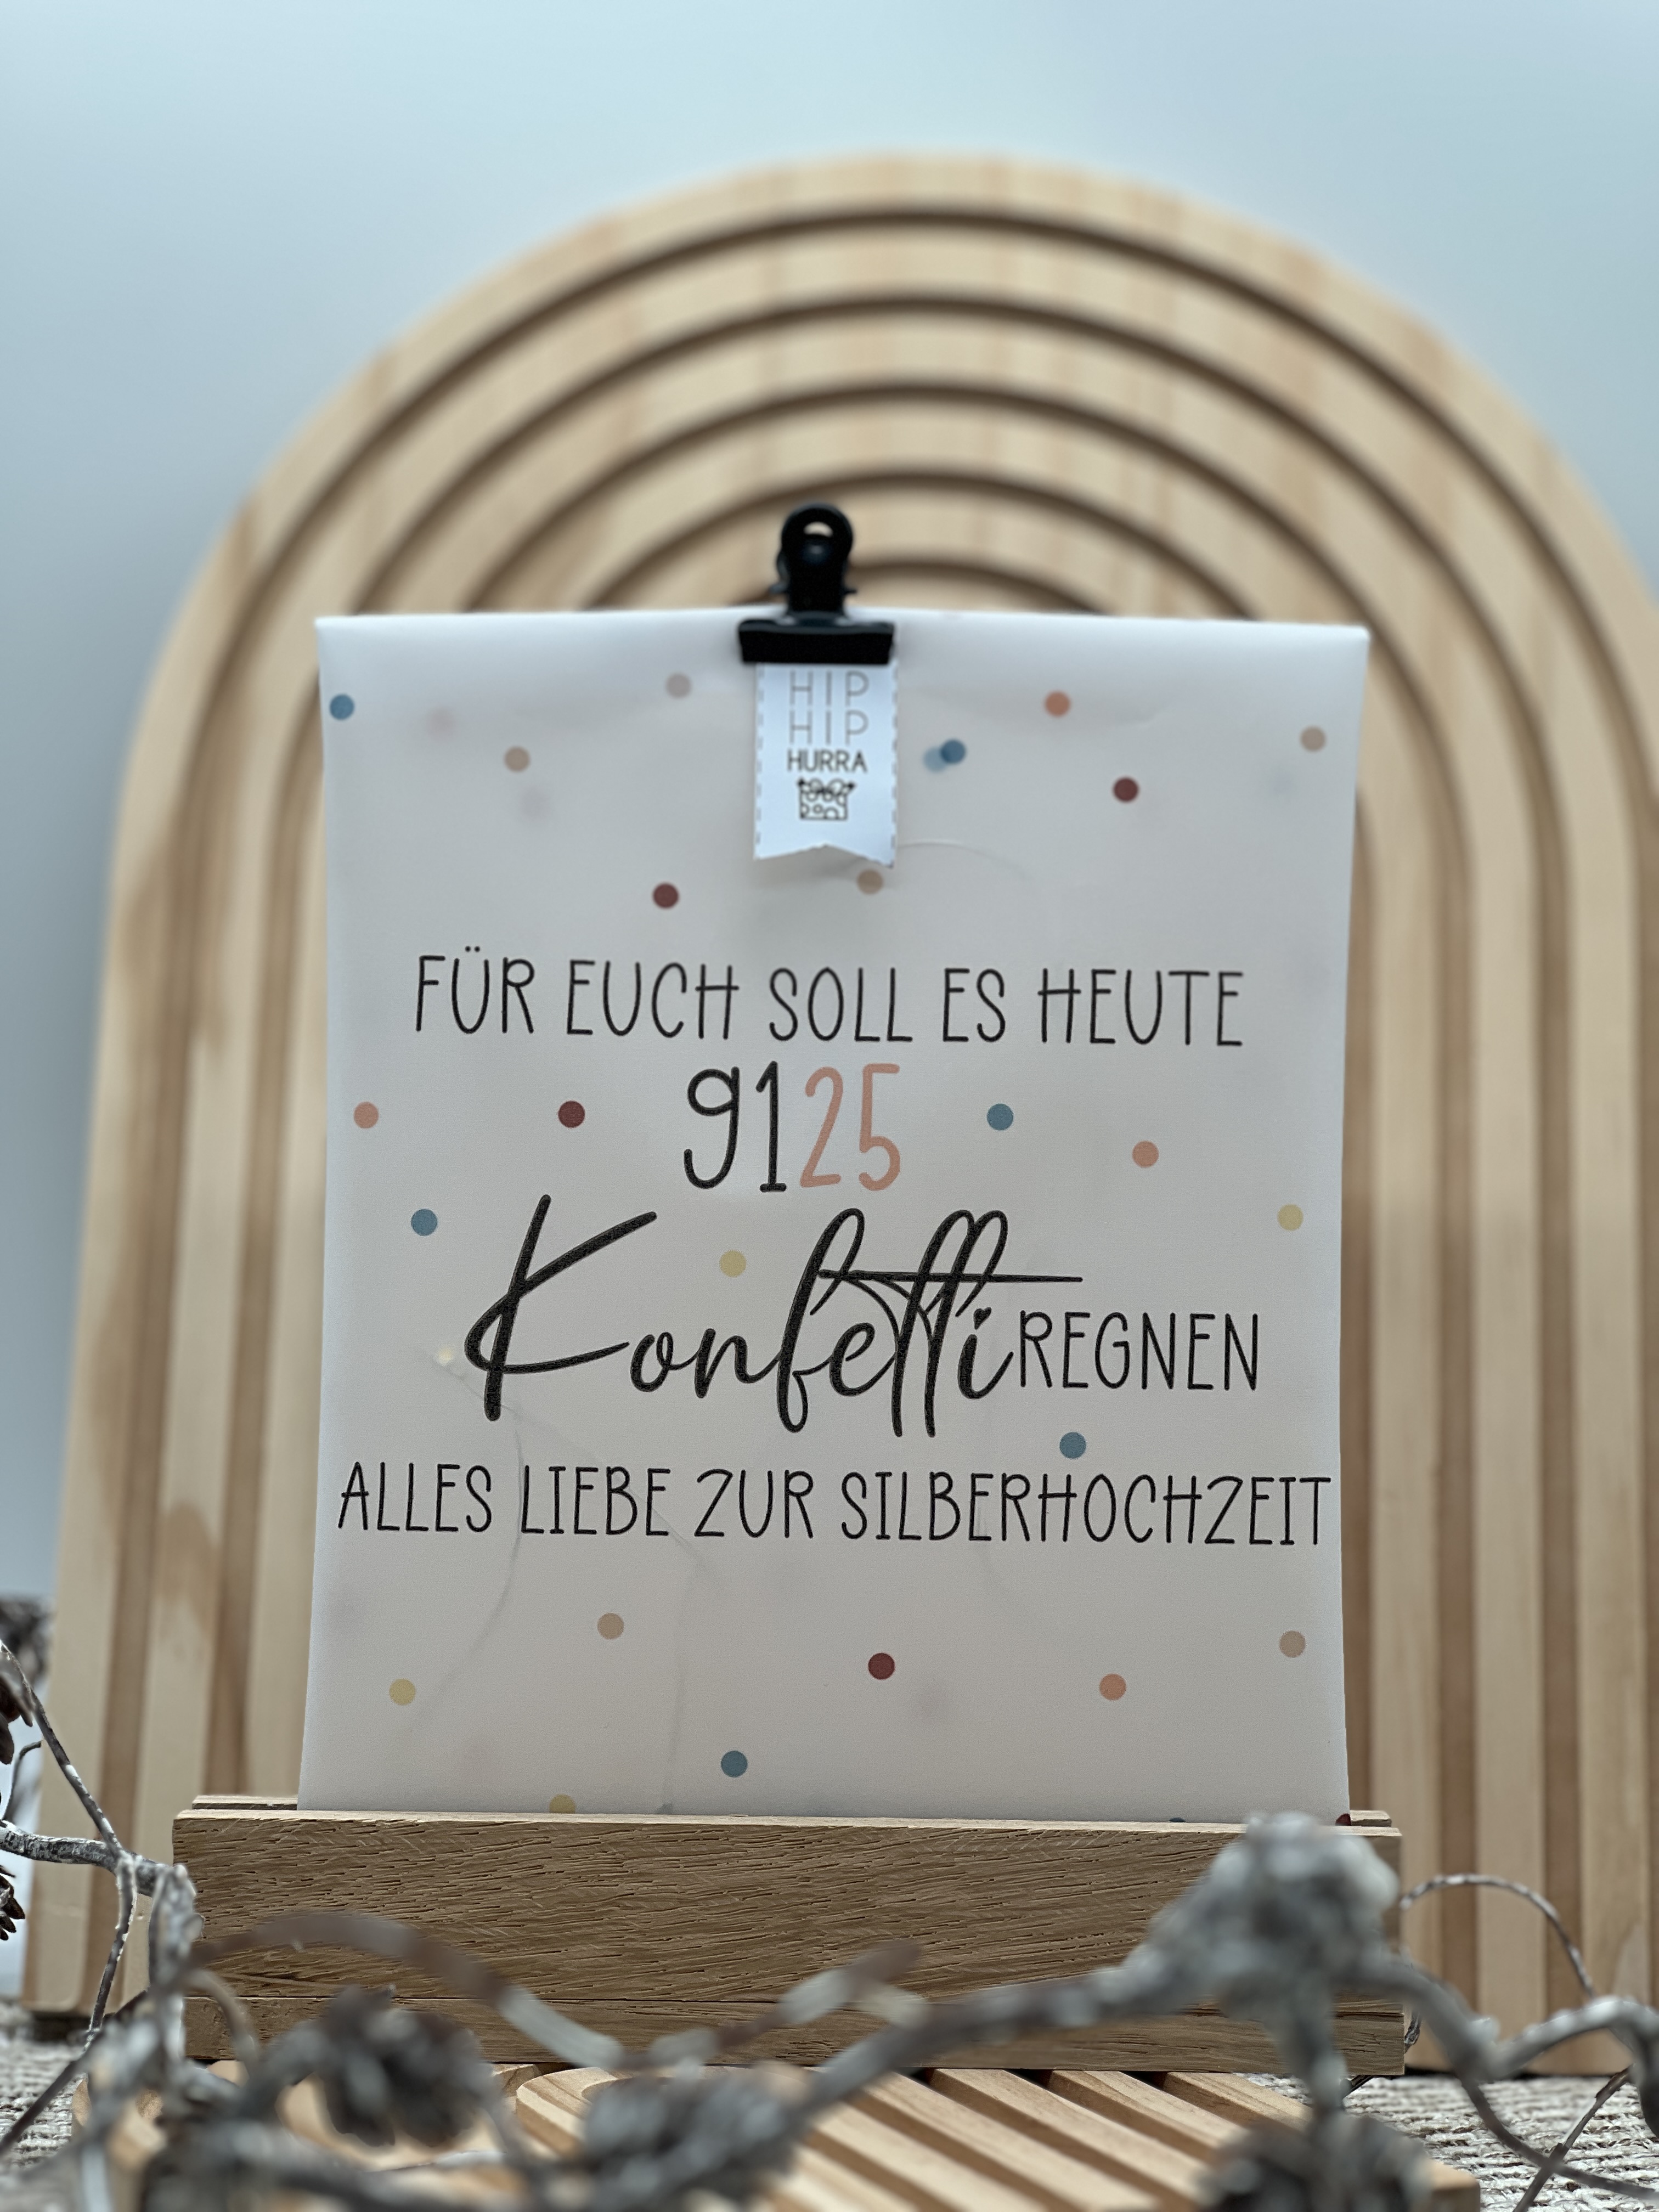 HIP
HIP
HURRA
FÜR EUCH SOLL ES HEUTE
9125
Konfetti REGNEN
ALLES LIEBE ZUR SILBERHOCHZEIT